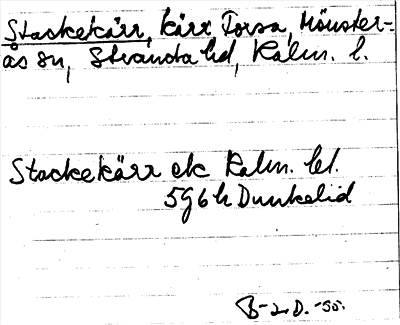 Stackekärr, kärr Torsa, Mönster-
ås sn, Stranda hd, Kalm. l.
Stackekärr ek Kalm. bl.
5g6h Dunkelid
-55.